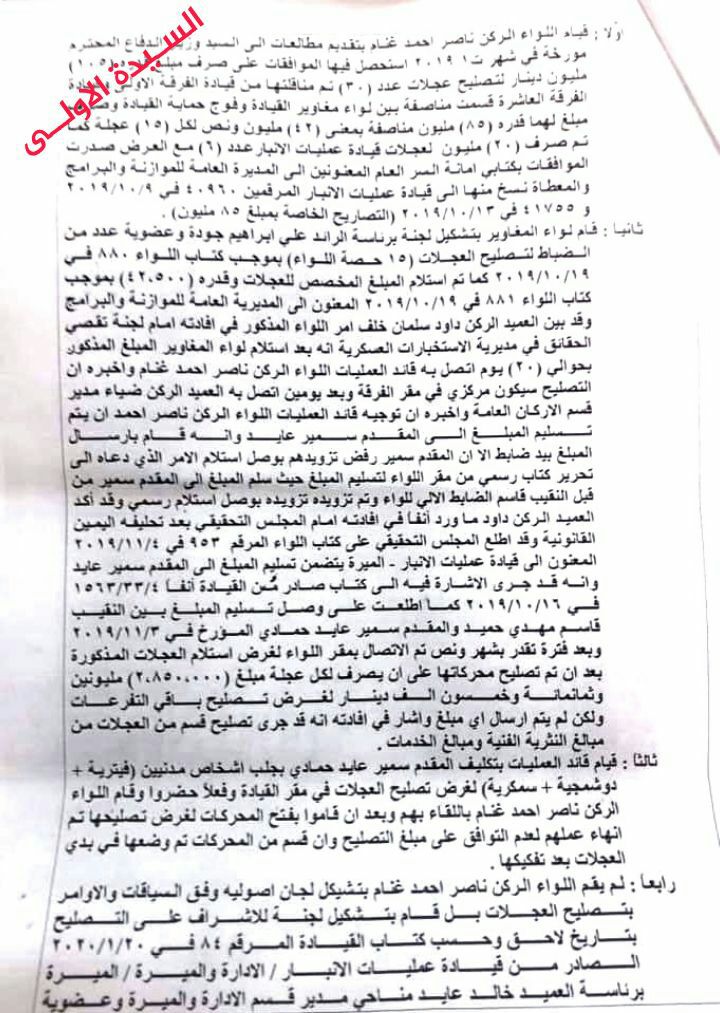 السيدة الاولى
اولا : قيام اللواء الركن ناصر احمد غنام بتقديم مطالعات الى السيد وزير الدفاع المحترم
مورخة في شهر ت١ ٢٠١٩ استحصل فيها الموافقات على صرف مبلغ (١٠٥)
مليون دينار لتصليح عجلات عدد (٣٠) تم مناقلتها من قيادة الفرقة الاولى
الفرقة العاشرة قسمت مناصفة بين لواء مغاوير القيادة وفوج حماية القيادة
مبلغ لهما قدره (٨٥) مليون مناصفة بمعنى (٤٢) مليون ونص لكل (١٥) عجلة كما
تم صرف (٢٠) مليون لعجلات قيادة عمليات الانبار عدد (٦) مع العرض صدرت
الموافقات بكتابي امانة السر العام المعنونين الى المديرة العامة للموازنة والبرامج
والمعطاة نسخ منها الى قيادة عمليات الانبار المرقمين ٤٠٩٦٠ في ٢٠١٩/١٠/٩
و ٤١٧٥٥ في ٢٠١٩/١٠/١٣ (التصاريح الخاصة بمبلغ ٨٥ مليون) .
ثانيا : قام لواء المغاوير بتشكيل لجنة برناسة الرائد علي ابراهيم جودة وعضوية عدد من
الضباط لتصليح العجلات (١٥ حصة اللواء) بموجب كتاب اللواء ٨٨٠ في
٢٠١٩/١٠/١٩ كما تم استلام المبلغ المخصص للعجلات وقدره (٤٢,٥٠٠) بموجب
كتاب اللواء ٨٨١ في ٢٠١٩/١٠/١٩ المعنون الى المديرية العامة للموازنة والبرامج
وقد بين العميد الركن داود سلمان خلف امر اللواء المذكور في افادته امام لجنة تقصي
الحقائق في مديرية الاستخبارات العسكرية انه بعد استلام لواء المغاوير المبلغ المذكور
بحوالي (٢٠) يوم اتصل به قائد العمليات اللواء الركن ناصر احمد غنام واخبره ان
التصليح سيكون مركزي في مقر الفرقة وبعد يومين اتصل به العميد الركن ضياء مدير
قسم الاركان العامة واخبره ان توجيه قائد العمليات اللواء الركن ناصر احمد ان يتم
تسليم المبلغ الى المقدم سمير عايد وانه قام بارسال
المبلغ بيد ضابط الا ان المقدم سمير رفض تزويدهم بوصل استلام الامر الذي دعاه الى
تحرير كتاب رسمي من مقر اللواء لتسليم المبلغ حيث سلم المبلغ الى المقدم سمير من
قبل النقيب قاسم الضابط الالي للواء وتم تزويده تزويده بوصل استلام رسمي وقد أكد
العميد الركن داود ما ورد أنفاً في افادته امام المجلس التحقيقي بعد تحليفه اليمين
القانونية وقد اطلع المجلس التحقيقي على كتاب اللواء المرقم ٩٥٣ في ٢٠١٩/١١/٤
المعنون الى قيادة عمليات الانبار - الميرة يتضمن تسليم المبلغ الى المقدم سمير عايد
وانه قد جرى الاشارة فيه الى كتاب صادر من القيادة أنفاً ١٥٦٣/٣٣/٤
في ٢٠١٩/١٠/١٦ كما اطلعت على وصل تسليم المبلغ بين النقيب
قاسم مهدي حميد والمقدم سمير عايد حمادي المؤرخ في ٢٠١٩/١١/٣
وبعد فترة تقدر بشهر ونص تم الاتصال بمقر اللواء لغرض استلام العجلات المذكورة
بعد ان تم تصليح محركاتها على ان يصرف لكل عجلة مبلغ (٢,٨٥٠,٠٠٠) مليونين
وثمانمانة وخمسون الف دينار لغرض تصليح باقي التفرعات
ولكن لم يتم ارسال اي مبلغ واشار في افادته انه قد جرى تصليح قسم من العجلات من
مبالغ النثرية الفنية ومبالغ الخدمات .
ثالثاً : قيام قائد العمليات بتكليف المقدم سمير عايد حمادي بجلب اشخاص مدنيين (فيترية +
دوشمجية + سمكرية) لغرض تصليح العجلات في مقر القيادة وفعلاً حضروا وقام اللواء
الركن ناصر احمد غنام باللقاء بهم وبعد ان قاموا بفتح المحركات لغرض تصليحها تم
انهاء عملهم لعدم التوافق على مبلغ التصليح وان قسم من المحركات تم وضعها في بدي
العجلات بعد تفكيكها .
رابعاً : لم يقم اللواء الركن ناصر احمد غنام بتشيكل لجان اصوليه وفق السياقات والاوامر
بتصليح العجلات بل قام بتشكيل لجنة للاشراف على التصليح
بتاريخ لاحق وحسب كتاب القيادة المرقم ٨٤ في ٢٠٢٠/١/٢٠
الصادر من قيادة عمليات الانبار / الادارة والميرة / الميرة
برناسة العميد خالد عايد مناحي مدير قسم الادارة والميرة وعضوية